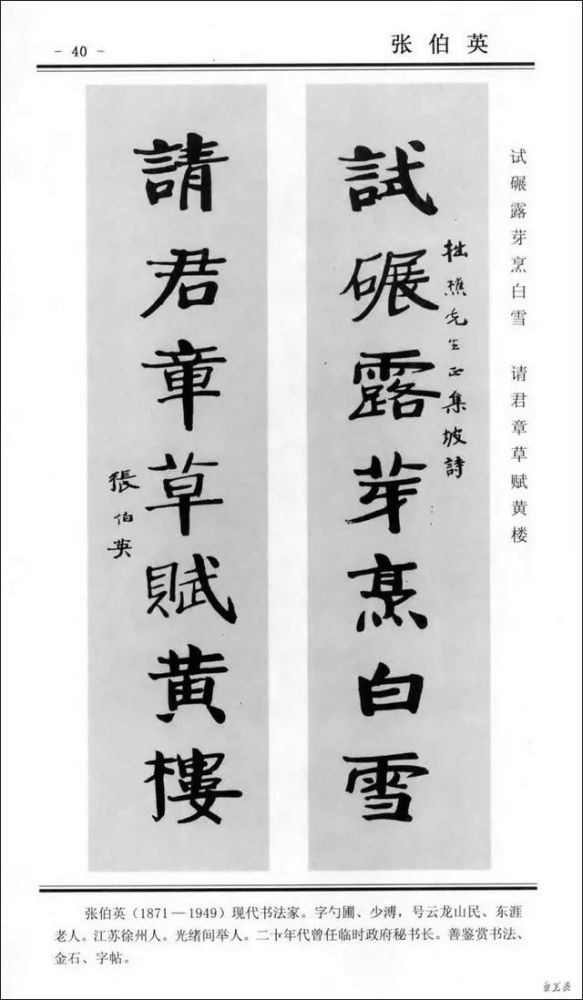 - 40 -
张伯英
试碾露芽烹白雪 请君章草赋黄楼
拙樵先生正集坡詩
試碾露芽烹白雪
請君章草賦黄樓
張伯英
张伯英（1871—1949）现代书法家。字勺圃、少溥，号云龙山民、东涯
老人。江苏徐州人。光绪间举人。二十年代曾任临时政府秘书长。善鉴赏书法、
金石、字帖。